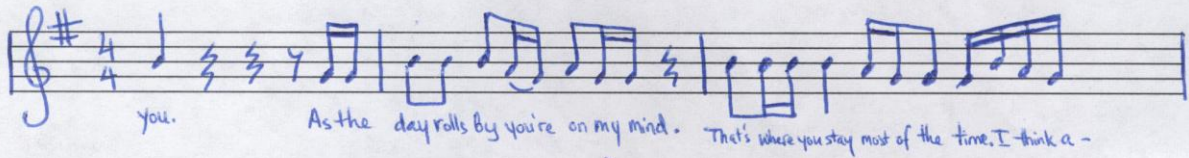 4
4
you. As the day rolls By you're on my mind. That's where you stay most of the time. I think a -